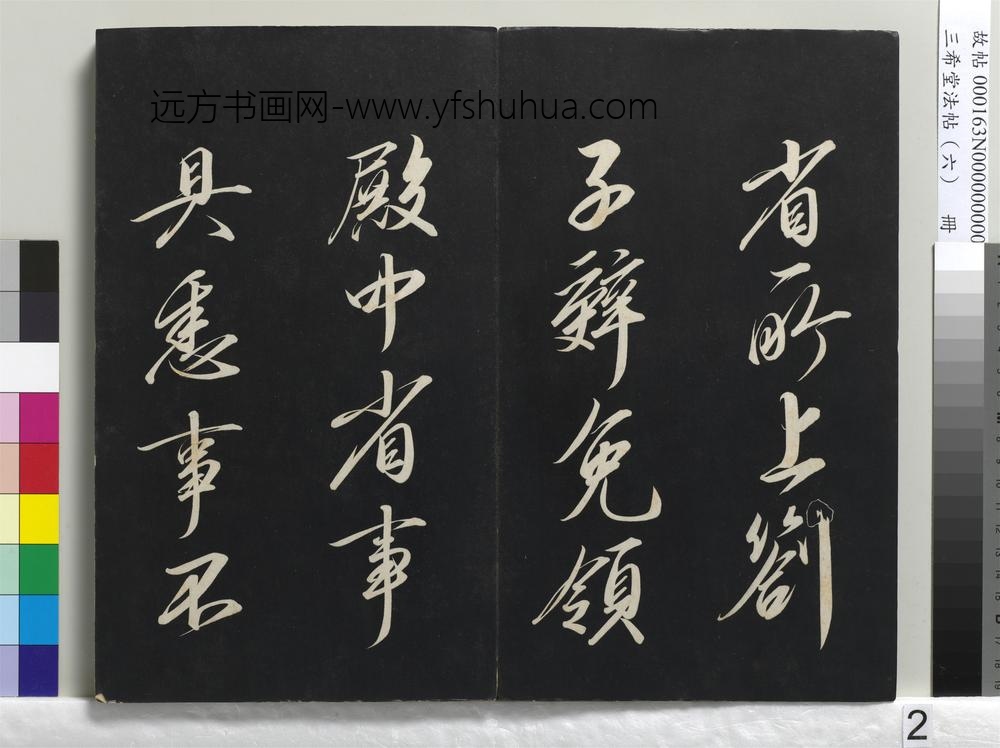 省所上劄
子辤免領
殿中省事
具悉事不
远方书画网-www.yfshuhua.com
故帖 000163N000000000
三希堂法帖（六） 冊
2